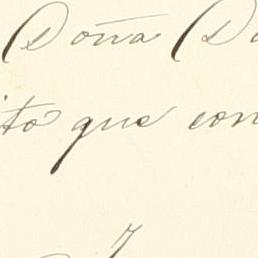 Doña D
ito que con